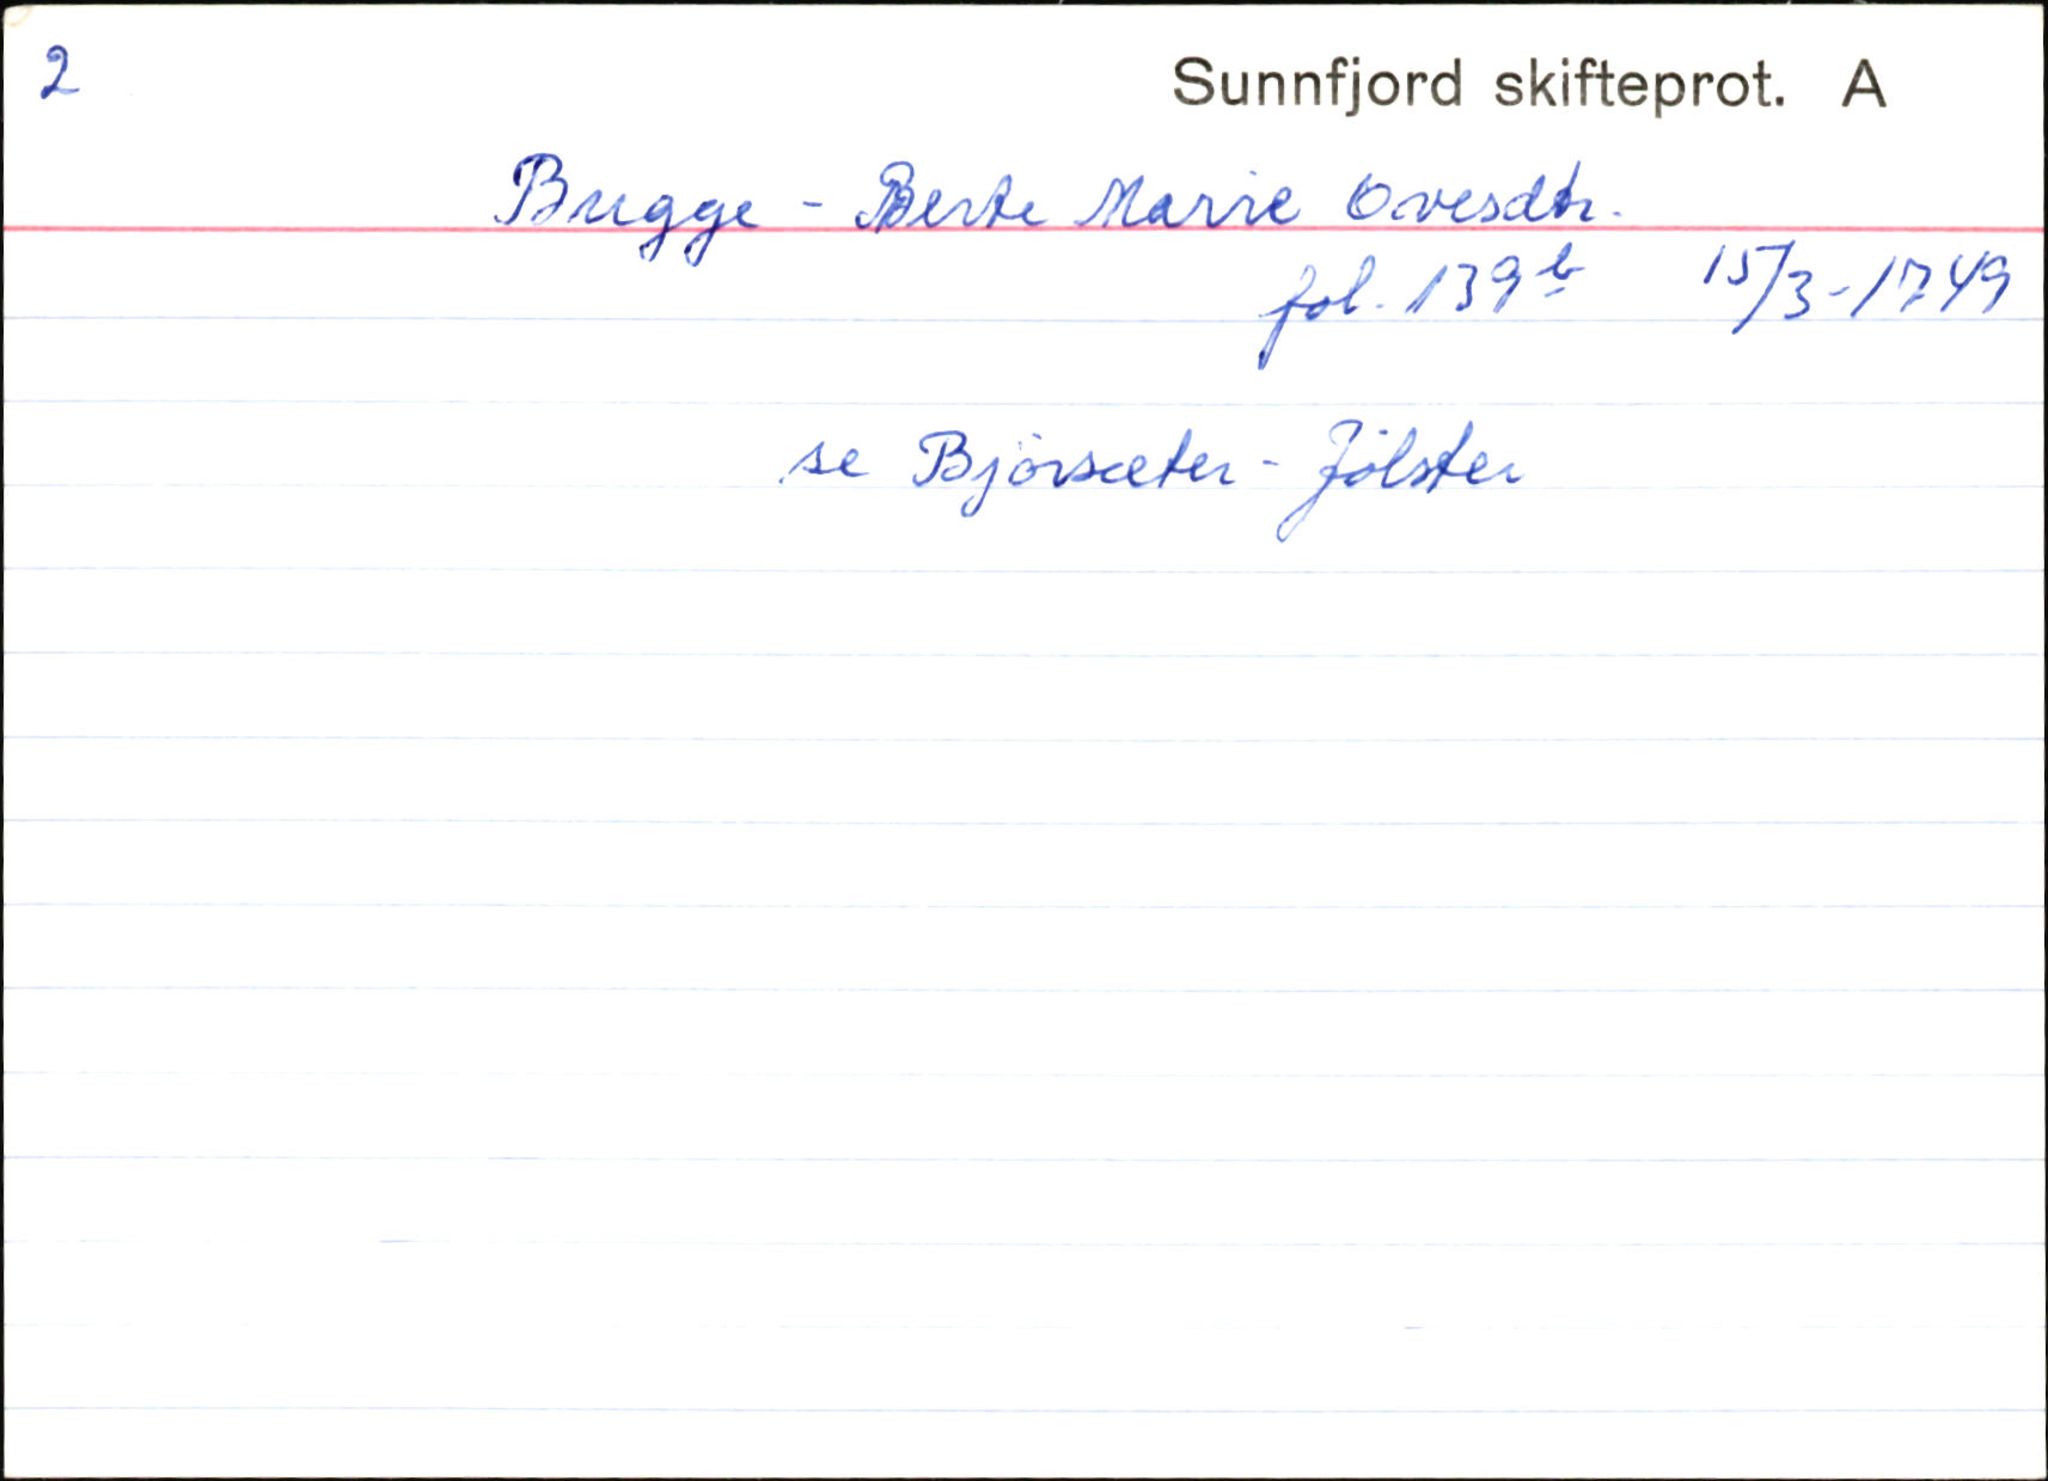 2
Sunnfjord skifteprot. A
Bugge - Berte Marie Ovesdtr.
fol. 139b 15/3-1749
se Björsæter - Jölster